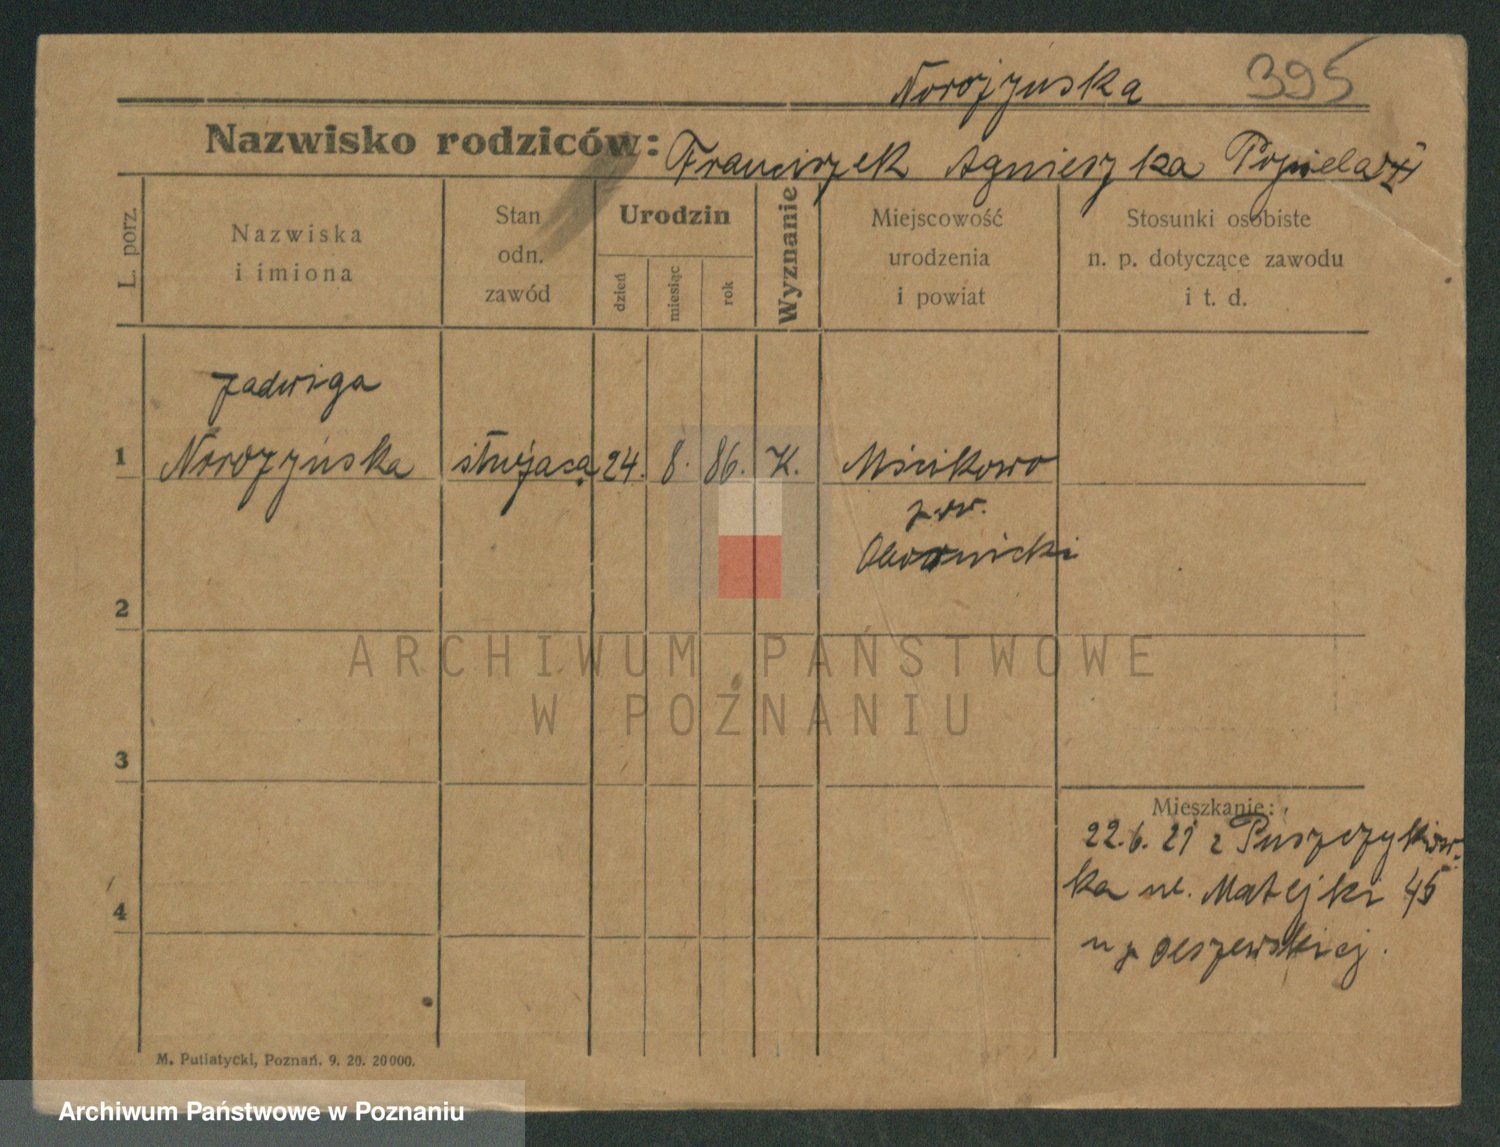 Norojzynska 395
Nazwisko rodziców: Franciszek Agnieszka
L. porz.
Nazwiska
i imiona
Stan
odn.
zawód
Urodzin
dzień
miesiąc
rok
Wyznanie
Miejscowość
urodzenia
i powiat
Stosunki osobiste
n. p. dotyczące zawodu
i t. d.
Jadwiga
1 służąca 24. 8. 86. K. Mścikowo
pow.
Obornicki
2
3
4
Mieszkanie:
22.6.21 z Puszczykow-
ka ul. Matejki 45
u p Olszewskiej.
M. Putiatycki, Poznań. 9. 20. 20000.
ARCHIWUM PAŃSTWOWE
W POZNANIU
Archiwum Państwowe w Poznaniu